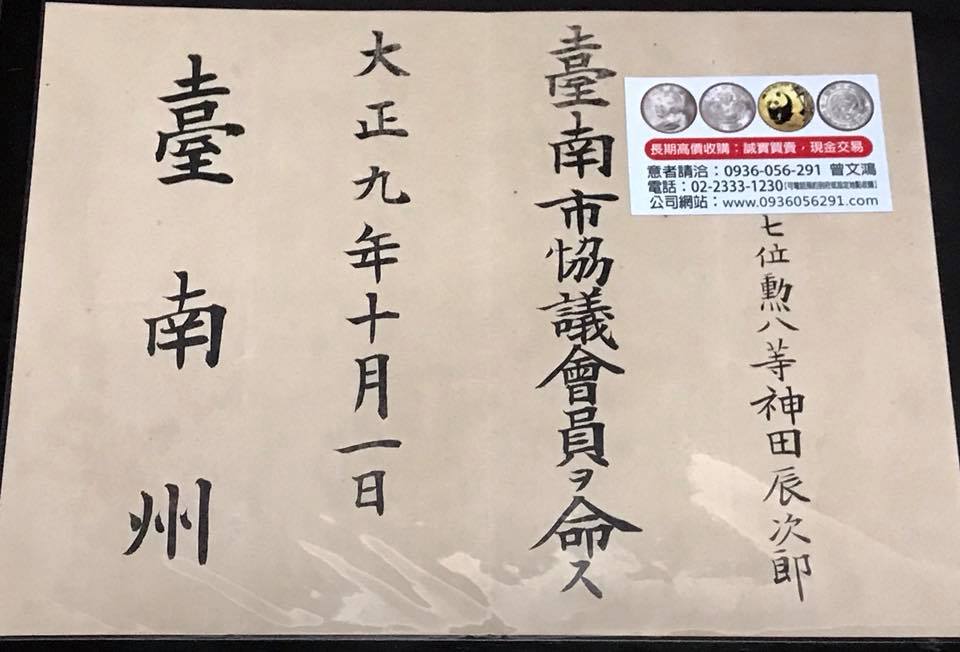 長期高價收購：誠實買賣，現金交易
意者請洽：0936-056-291 曾文鴻
電話：02-2333-1230
公司網站：www.0936056291.com
七位勳八等神田辰次郎
臺南市協議會員ヲ命ス
大正九年十月一日
臺南州